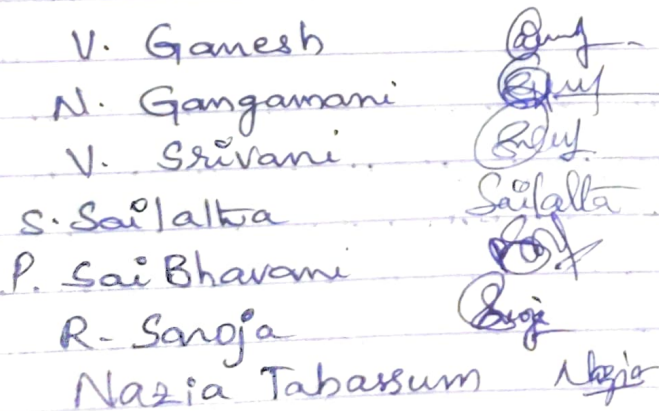 V. Ganesh
N. Gangamani
V. Srivani
S. Sailatha Sailatha
P. Sai Bhavani
R- Saroja Saroja
Nazia Tabassum Nazia